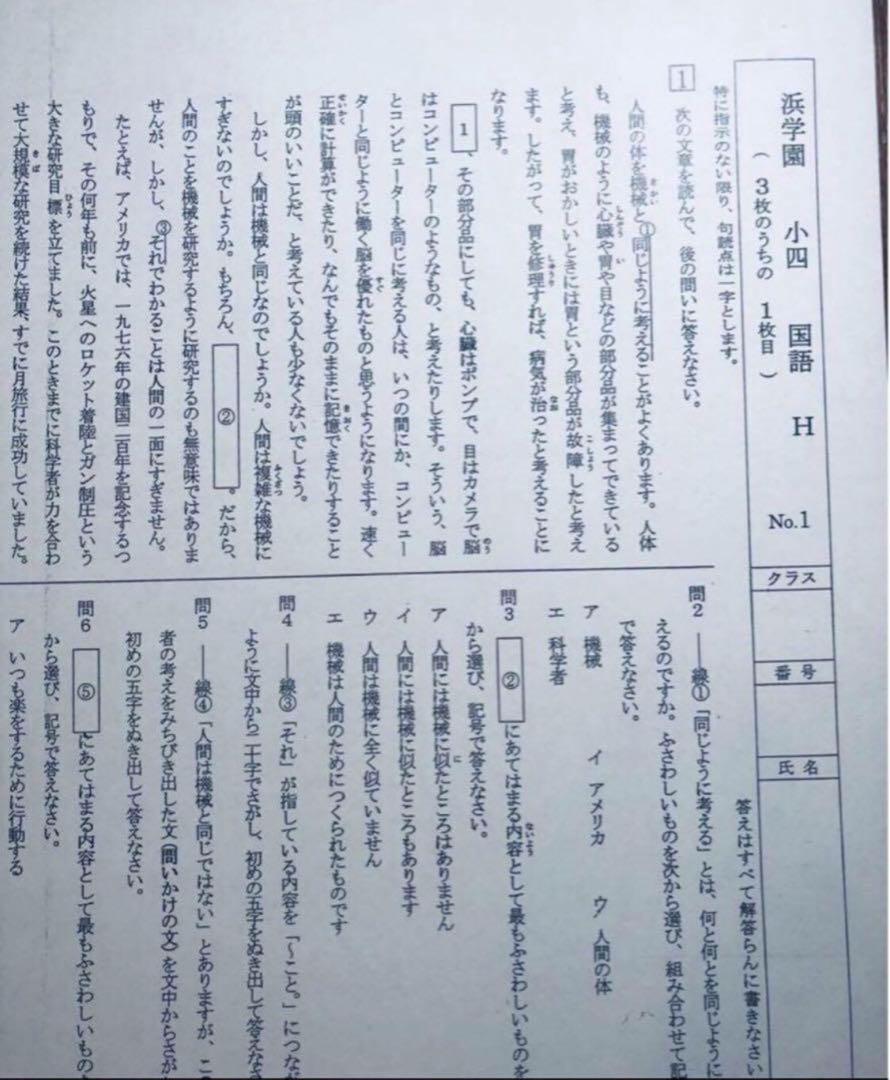 浜学園 小四 国語 H No.1
(3枚のうちの 1枚目)
クラス
番号
氏名
答えはすべて解答らんに書きなさい
特に指示のない限り、句読点は一字とします。
1 次の文章を読んで、後の問いに答えなさい。
人間の体を機械と①同じように考えることがよくあります。人体
も、機械のように心臓や胃や目などの部分品が集まってできている
と考え、胃がおかしいときには胃という部分品が故障したと考え
ます。したがって、胃を修理すれば、病気が治ったと考えることに
なります。
1、その部分品にしても、心臓はポンプで、目はカメラで脳
はコンピューターのようなもの、と考えたりします。そういう、脳
とコンピューターを同じに考える人は、いつの間にか、コンピュー
ターと同じように働く脳を優れたものと思うようになります。速く
正確に計算ができたり、なんでもそのままに記憶できたりすること
が頭のいいことだ、と考えている人も少なくないでしょう。
しかし、人間は機械と同じなのでしょうか。人間は複雑な機械に
すぎないのでしょうか。もちろん、②。だから、
人間のことを機械を研究するように研究するのも無意味ではありま
せんが、しかし、③それでわかることは人間の一面にすぎません。
たとえば、アメリカでは、一九七六年の建国二百年を記念するつ
もりで、その何年も前に、火星へのロケット着陸とガン制圧という
大きな研究目標を立てました。このときまでに科学者が力を合わ
せて大規模な研究を続けた結果、すでに月旅行に成功していました。
問2 ――線①「同じように考える」とは、何と何とを同じように
えるのですか。ふさわしいものを次から選び、組み合わせて記
で答えなさい。
ア 機械 イ アメリカ ウ 人間の体
エ 科学者
問3 ②にあてはまる内容として最もふさわしいものを
から選び、記号で答えなさい。
ア 人間には機械に似たところはありません
イ 人間には機械に似たところもあります
ウ 人間は機械に全く似ていません
エ 機械は人間のためにつくられたものです
問4 ――線③「それ」が指している内容を「～こと。」につなが
ように文中から二十字でさがし、初めの五字をぬき出して答えなさ
問5 ――線④「人間は機械と同じではない」とありますが、こ
者の考えをみちびき出した文(問いかけの文)を文中からさが
初めの五字をぬき出して答えなさい。
問6 ⑤にあてはまる内容として最もふさわしいもの
から選び、記号で答えなさい。
ア いつも楽をするために行動する